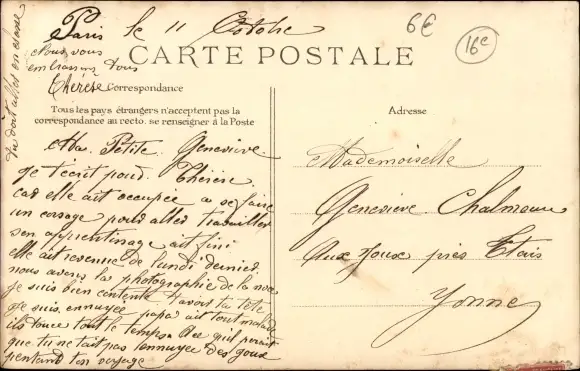 Paris le 11 Octobre
6€
16e
CARTE POSTALE
Nous vous
embrassons tous
Thérèse
Correspondance
Tous les pays étrangers n'acceptent pas la
correspondance au recto. se renseigner à la Poste
Adresse
Ma Petite Geneviève
Je t'ecrit pour Thérèse
car elle ait occupée a se faire
un corsage pour aller travailler
son apprentisage ait fini
elle ait revenue de lundi dernier
nous avons la photographie de la noce
je suis bien contente t'avoir ta tete
je suis ennuyée papa ait tout malade
il tousse tout le temps
que tu ne tait pas ennuyee des goux
pentand ton voyage
tu doit allée en classe
Mademoiselle
Geneviève Chalmeau
Aux Joux près Etais
Yonne